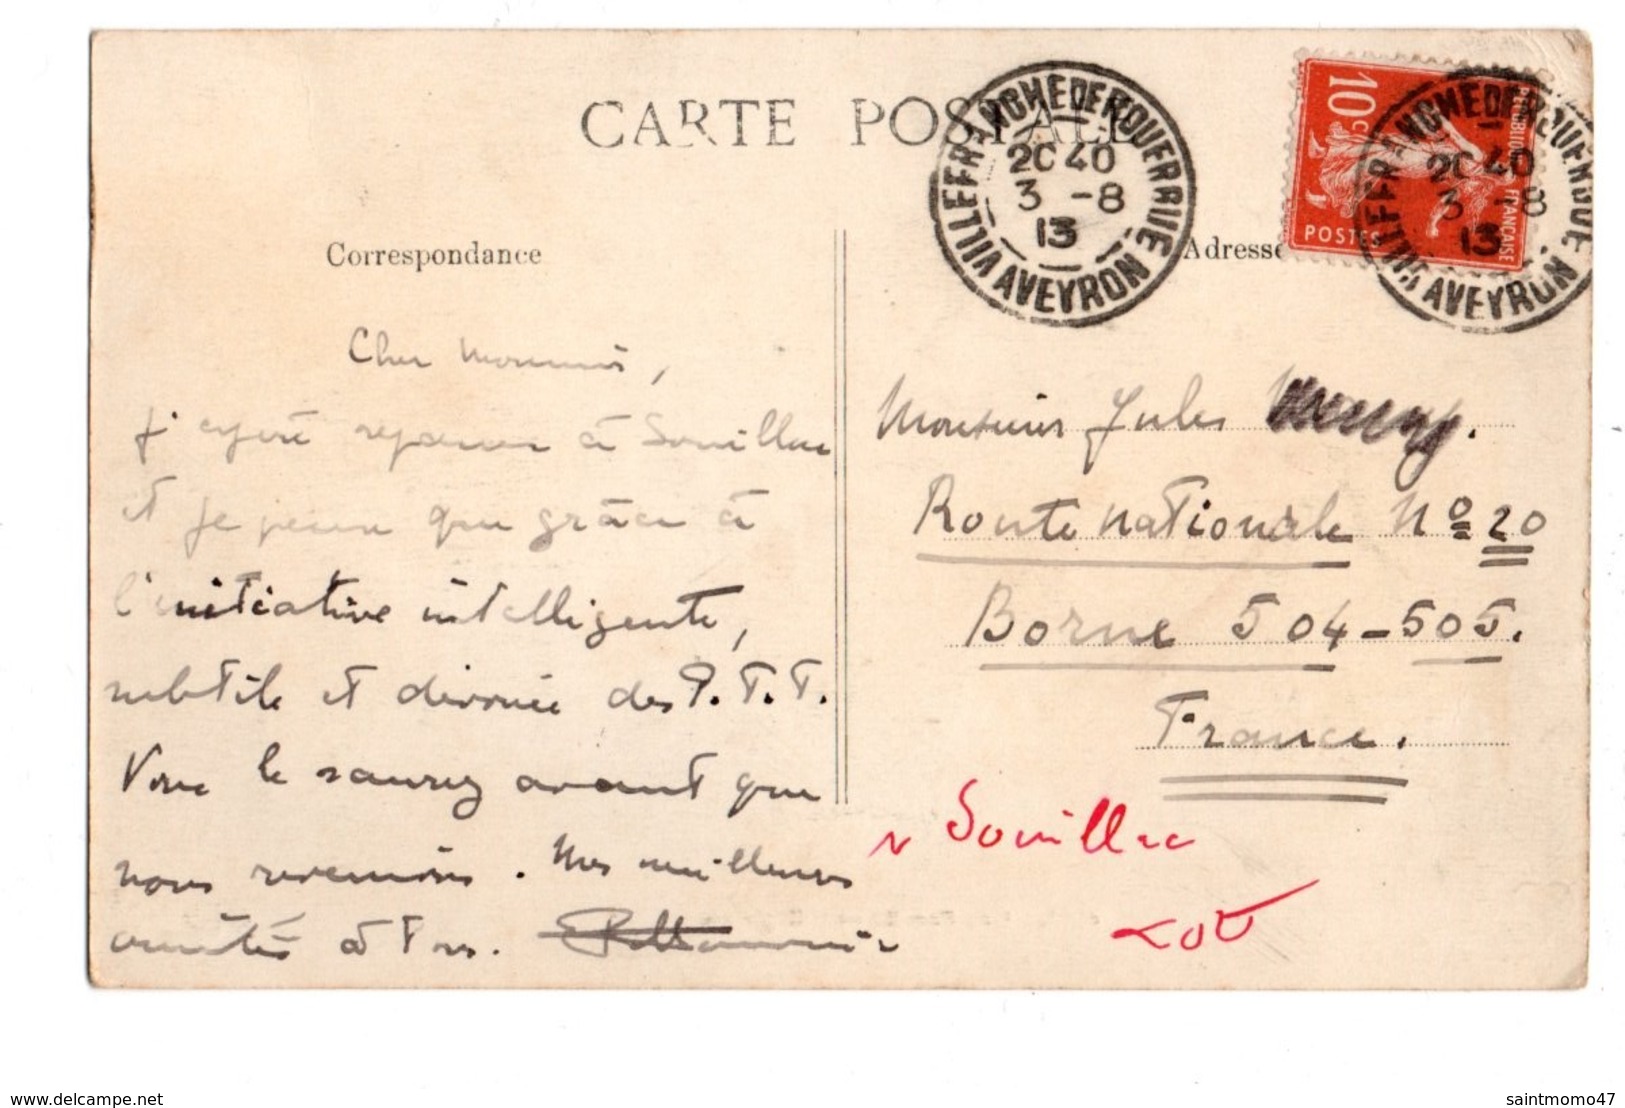 CARTE POSTALE
VILLEFRANCHE DE ROUERGUE
20 40
3 -8
13
AVEYRON
10c
POSTES
REPUBLIQUE FRANÇAISE
20 40
3 -8
13
AVEYRON
Correspondance
Adresse
Cher
j'espère à Souillac
et je pense que grâce à
l'initiative intelligente,
subtile et dévouée des P.T.T.
Vous le saurez avant que
nous revenions. Mes meilleures
amitiés à tous.
Monsieur Jules
Route nationale No 20
Borne 504-505.
France.
Souillac
Lot
www.delcampe.net
saintmomo47